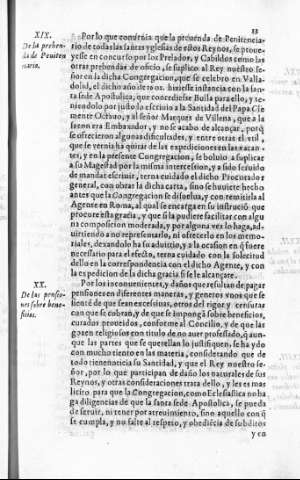 13
XIX.
De la preben-
da de Peniten
ciario.
Por lo que convenia que la prevenda de Penitencia-
rio de todas las santas yglesias de estos Reynos, se prove-
yesse en concurso por los Prelados, y Cabildos como las
otras prebendas de oficio, se suplico al Rey nuestro se-
ñor en la dicha Congregacion, que se celebro en Valla-
dolid, el dicho año de 1602. hiziesse instancia con la san-
ta sede Apostolica, que concediesse Bulla para ello, y te-
niendolo por justo escrivio a la Santidad del Papa Cle-
mente Octavo, y al señor Marques de Villena, que a la
sazon era Embaxador, y no se acabo de alcançar, porq̃
se ofrecieron algunas dificultades, y entre otras el util,
que se vernia ha quitar de las expediciones en las vacan-
tes, y en la presente Congregacion, se bolvio a suplicar
a su Magestad por la misma intercession, y a sido servido
de mandar escrivir, terna cuidado el dicho Procurador
general, con obrar la dicha carta, sino se huviere hecho
antes que la Congregacion se disuelva, y con remitirla al
Agente en Roma, al qual se encarga en su instrució que
procure esta gracia, y que si la pudiere facilitar con algu
na composicion moderada, y por alguna vez lo haga, ad-
uirtiendo a no representarlo, ni ofrecerlo en los memo-
riales, dexandolo ha su advitrio, y a la ocasion en q̃ fuere
necessario para el efecto, terna cuidado con la solicitud
dello en la correspondencia con el dicho Agente, y con
la espedicion de la dicha gracia si se le alcançare.
XX.
De las pensio-
nes sobre bene-
ficios.
Por los inconvenientes, y daños que resultan de pagar
pensiones en diferentes maneras, y generos vnos que se
siente de que sean excesivas, otros del rigor y censuras
con que se cobran, y de que se impongã sobre beneficios,
curados proveidos, conforme al Concilio, y de que las
gozen religiosos con titulo de no auer professado, q̃ aun-
que las partes que se querellan lo justifiquen, se ha ydo
con mucho tiento en las materia, considerando que de
todo tiene noticia su Santidad, y que el Rey nuestro se-
ñor, por lo que participan de daño los naturales de sus
Reynos, y otras consideraciones trata dello, y les es mas
licito para que la Congregacion, como Eclesiastica no ha
ga diligencias de que la santa sede Apostolica, se pueda
de servir, ni tener por atrevimiento, sino aquello con q̃
se cumpla, y no falte al respeto, y obediecia de subditos
y en